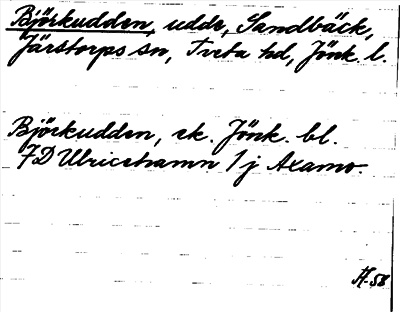 Björkudden, udde, Sandbäck,
Järstorps sn, Tveta hd, Jönk. l.
Björkudden, ek. Jönk. bl.
7D Ulricehamn 1 j Axamo.
H-58